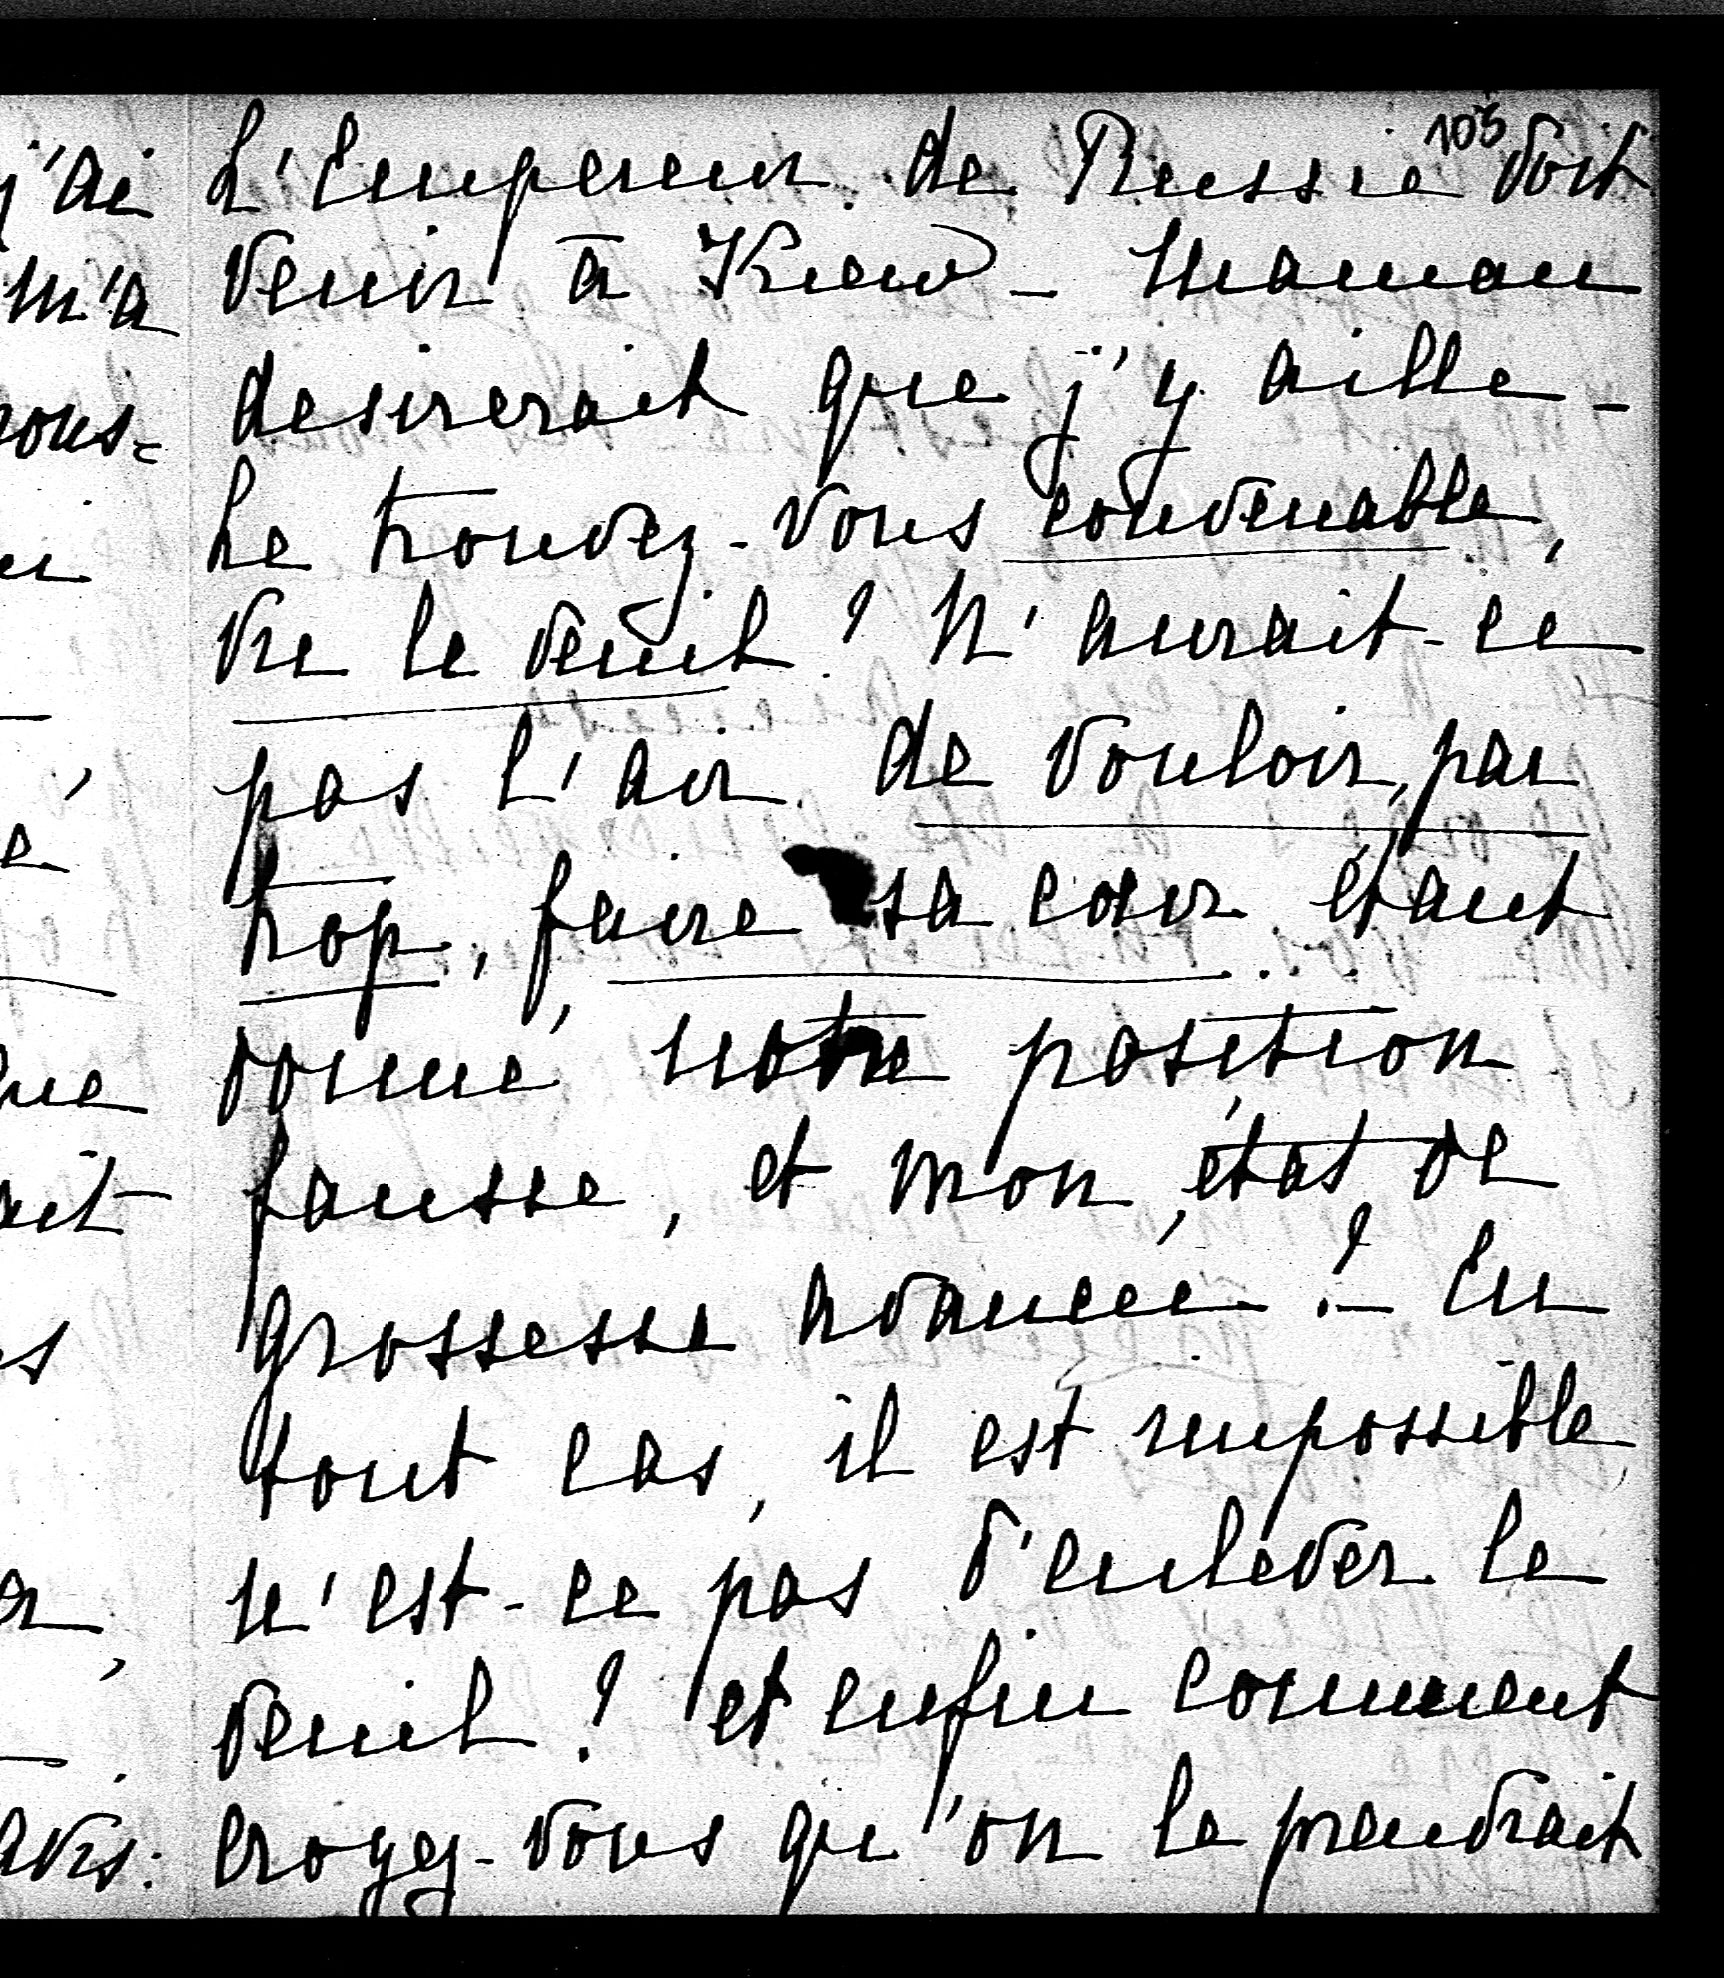 103
j'ai
m'a
L'Empereur de Russie doit
venir à Kiew - Maman
desirerait que j'y aille -
Le trouvez-vous convenable,
vu le deuil? N'aurait-ce
pas l'air de vouloir, par
trop, faire sa cour étant
donné, notre position
fausse, et mon état de
grossesse avancée? - En
tout cas, il est impossible
n'est-ce pas d'enlever le
deuil? et enfin comment
croyez-vous qu'on le prendrait